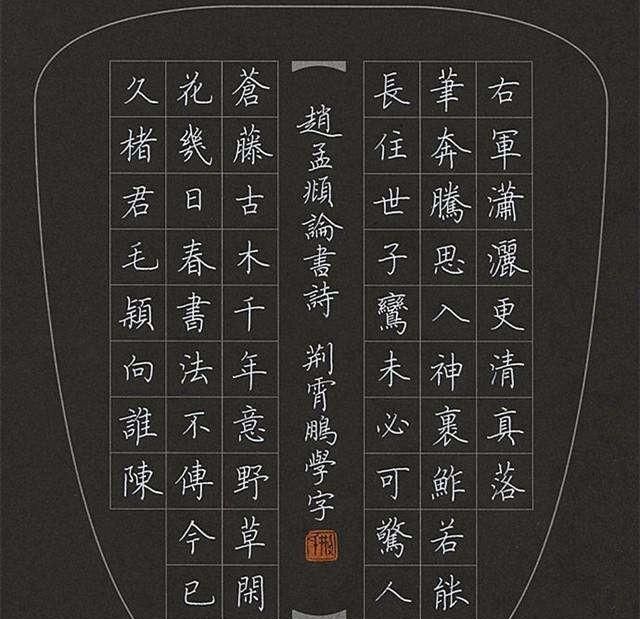 右軍瀟灑更清真落
筆奔騰思入神裹鮓若能
長住世子鸞未必可驚人
趙孟頫論書詩 荆霄鵬學字
蒼藤古木千年意野草閑
花幾日春書法不傳今已
久楮君毛穎向誰陳